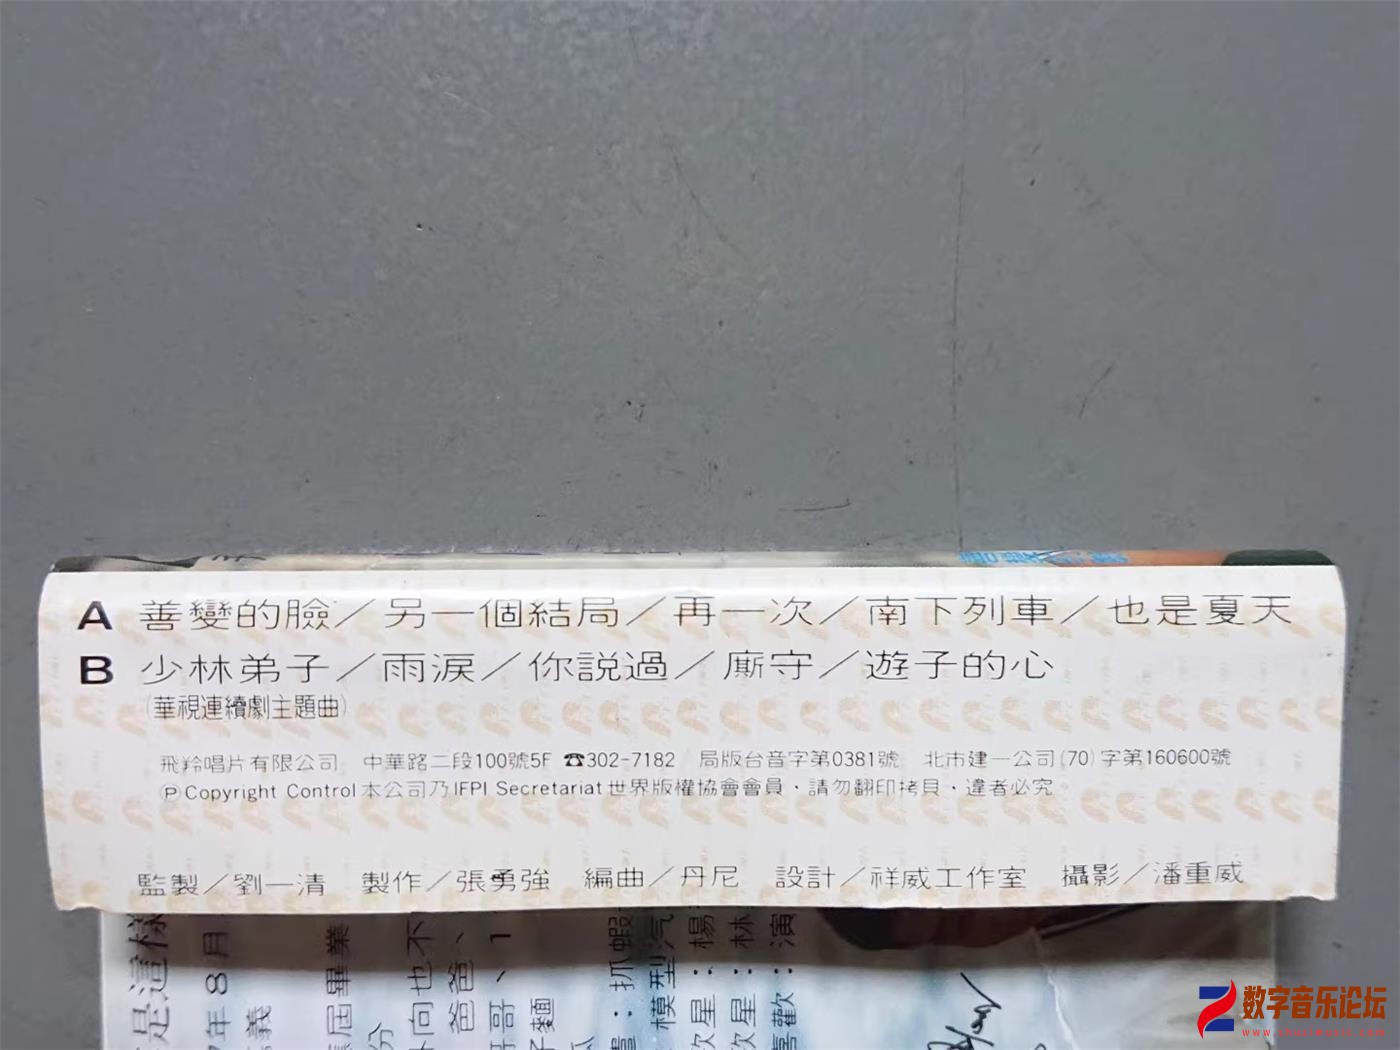 A 善變的臉／另一個結局／再一次／南下列車／也是夏天
B 少林弟子／雨淚／你説過／廝守／遊子的心
(華視連續劇主題曲)
飛羚唱片有限公司 中華路二段100號5F ☎302-7182 局版台音字第0381號 北市建一公司(70)字第160600號
ⓅCopyright Control本公司乃IFPI Secretariat世界版權協會會員、請勿翻印拷貝、違者必究。
監製／劉一清 製作／張勇強 編曲／丹尼 設計／祥威工作室 攝影／潘重威
是這樣
年8月
義
屆畢業
份
向也不
爸爸、
哥、1
子麵
：抓蝦
模型汽
欠星：楊
欠星：林
喜歡：演
数字音乐论坛